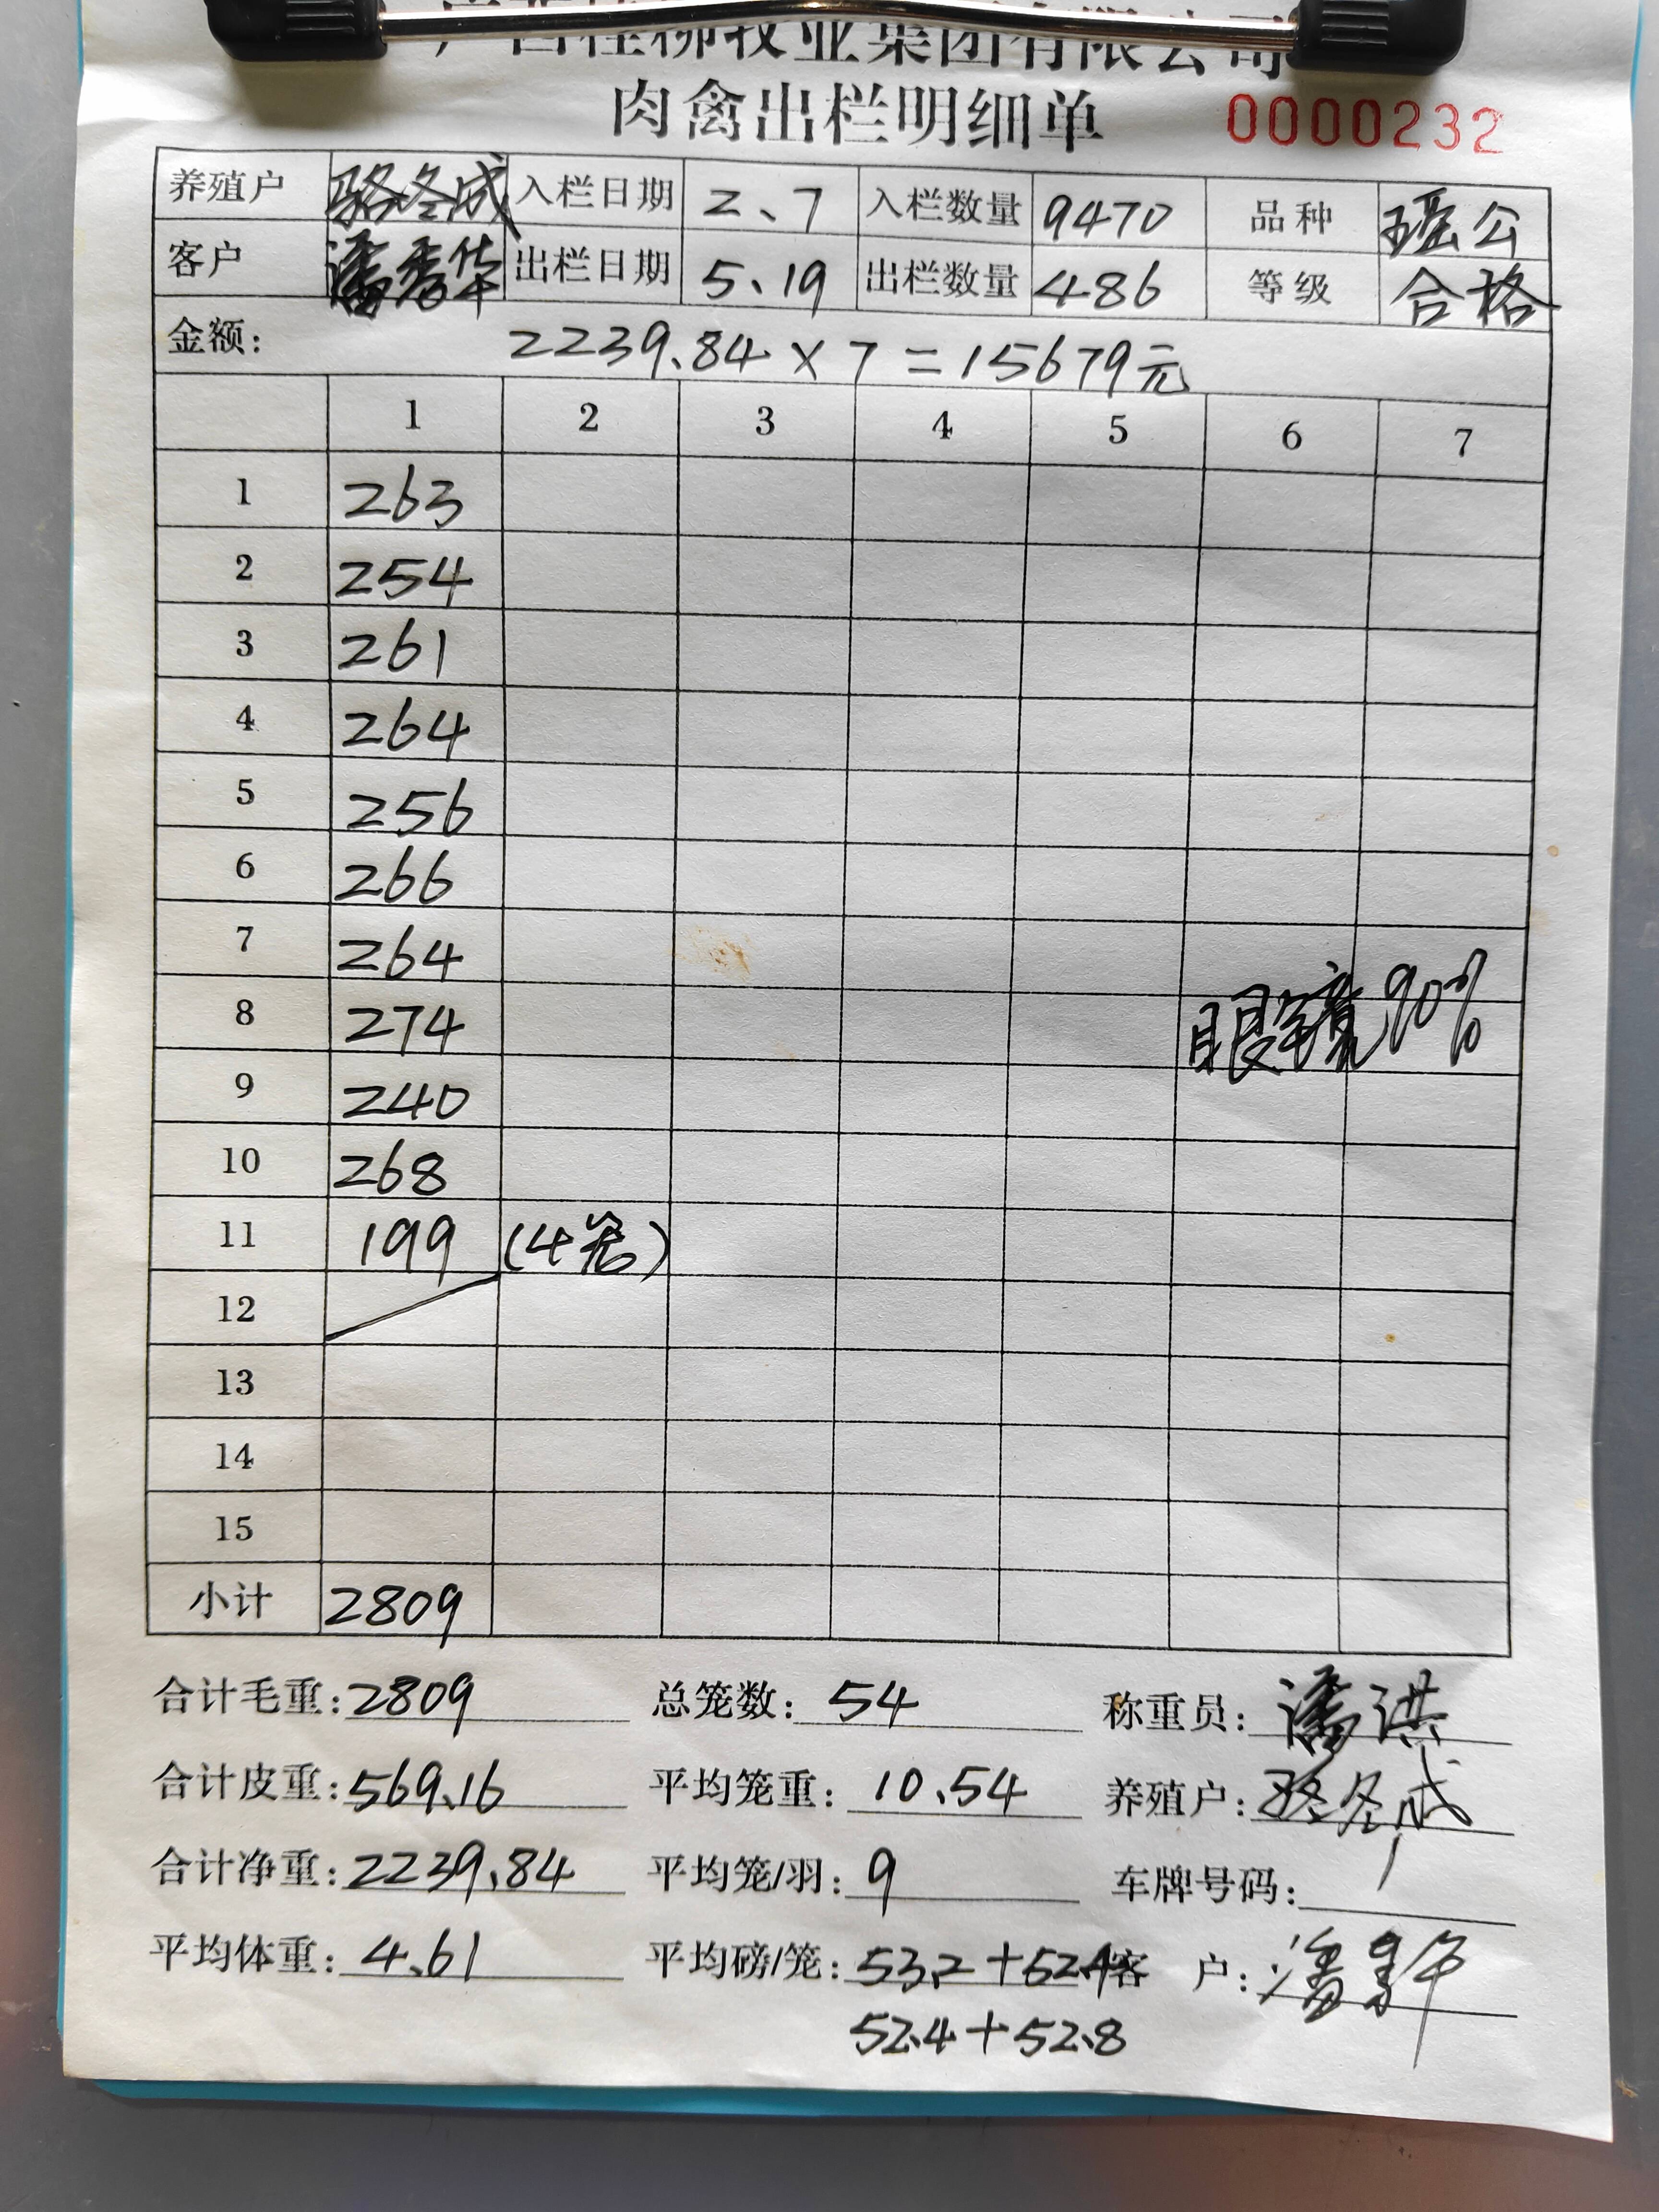 广西桂柳牧业集团有限公司
肉禽出栏明细单 0000232
养殖户 骆冬成 入栏日期 2、7 入栏数量 9470 品种 瑶公
客户 潘秀华 出栏日期 5、19 出栏数量 486 等级 合格
金额: 2239.84 × 7 = 15679元
1 2 3 4 5 6 7
1 263
2 254
3 261
4 264
5 256
6 266
7 264
8 274 90%
9 240
10 268
11 199 (4笼)
12
13
14
15
小计 2809
合计毛重: 2809 总笼数: 54 称重员: 潘洪
合计皮重: 569.16 平均笼重: 10.54 养殖户: 骆冬成
合计净重: 2239.84 平均笼/羽: 9 车牌号码:
平均体重: 4.61 平均磅/笼: 53.2 + 52.4 客 户:
52.4 + 52.8